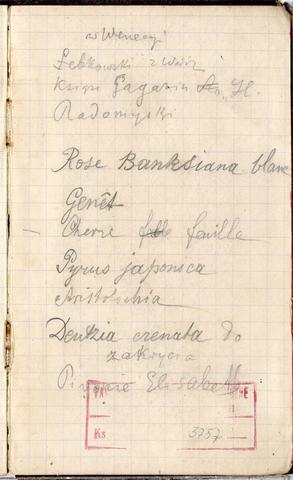 w Wenecyi
Łękowski z Wóz
Książe Gagarin Hr. H.
Radomyski
Rose Banksiana blanc
Genêt
– Chene feuille
Pyrus japonica
Aristolochia
Deutzia crenata do
zakrycia
Pivoine Elisabeth
Ks 3757